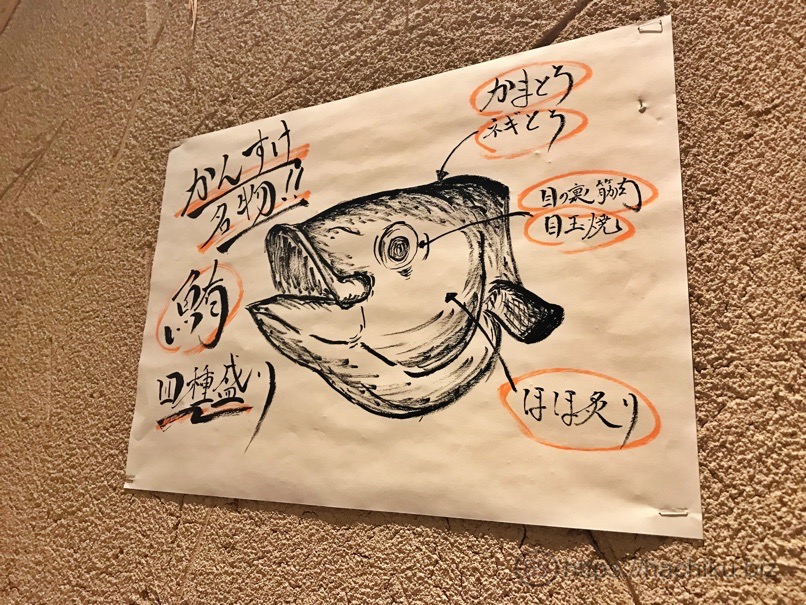 かんすけ
名物!!
鮪
四種盛り
かまとろ
ネギとろ
目の裏筋肉
目玉焼
ほほ炙り